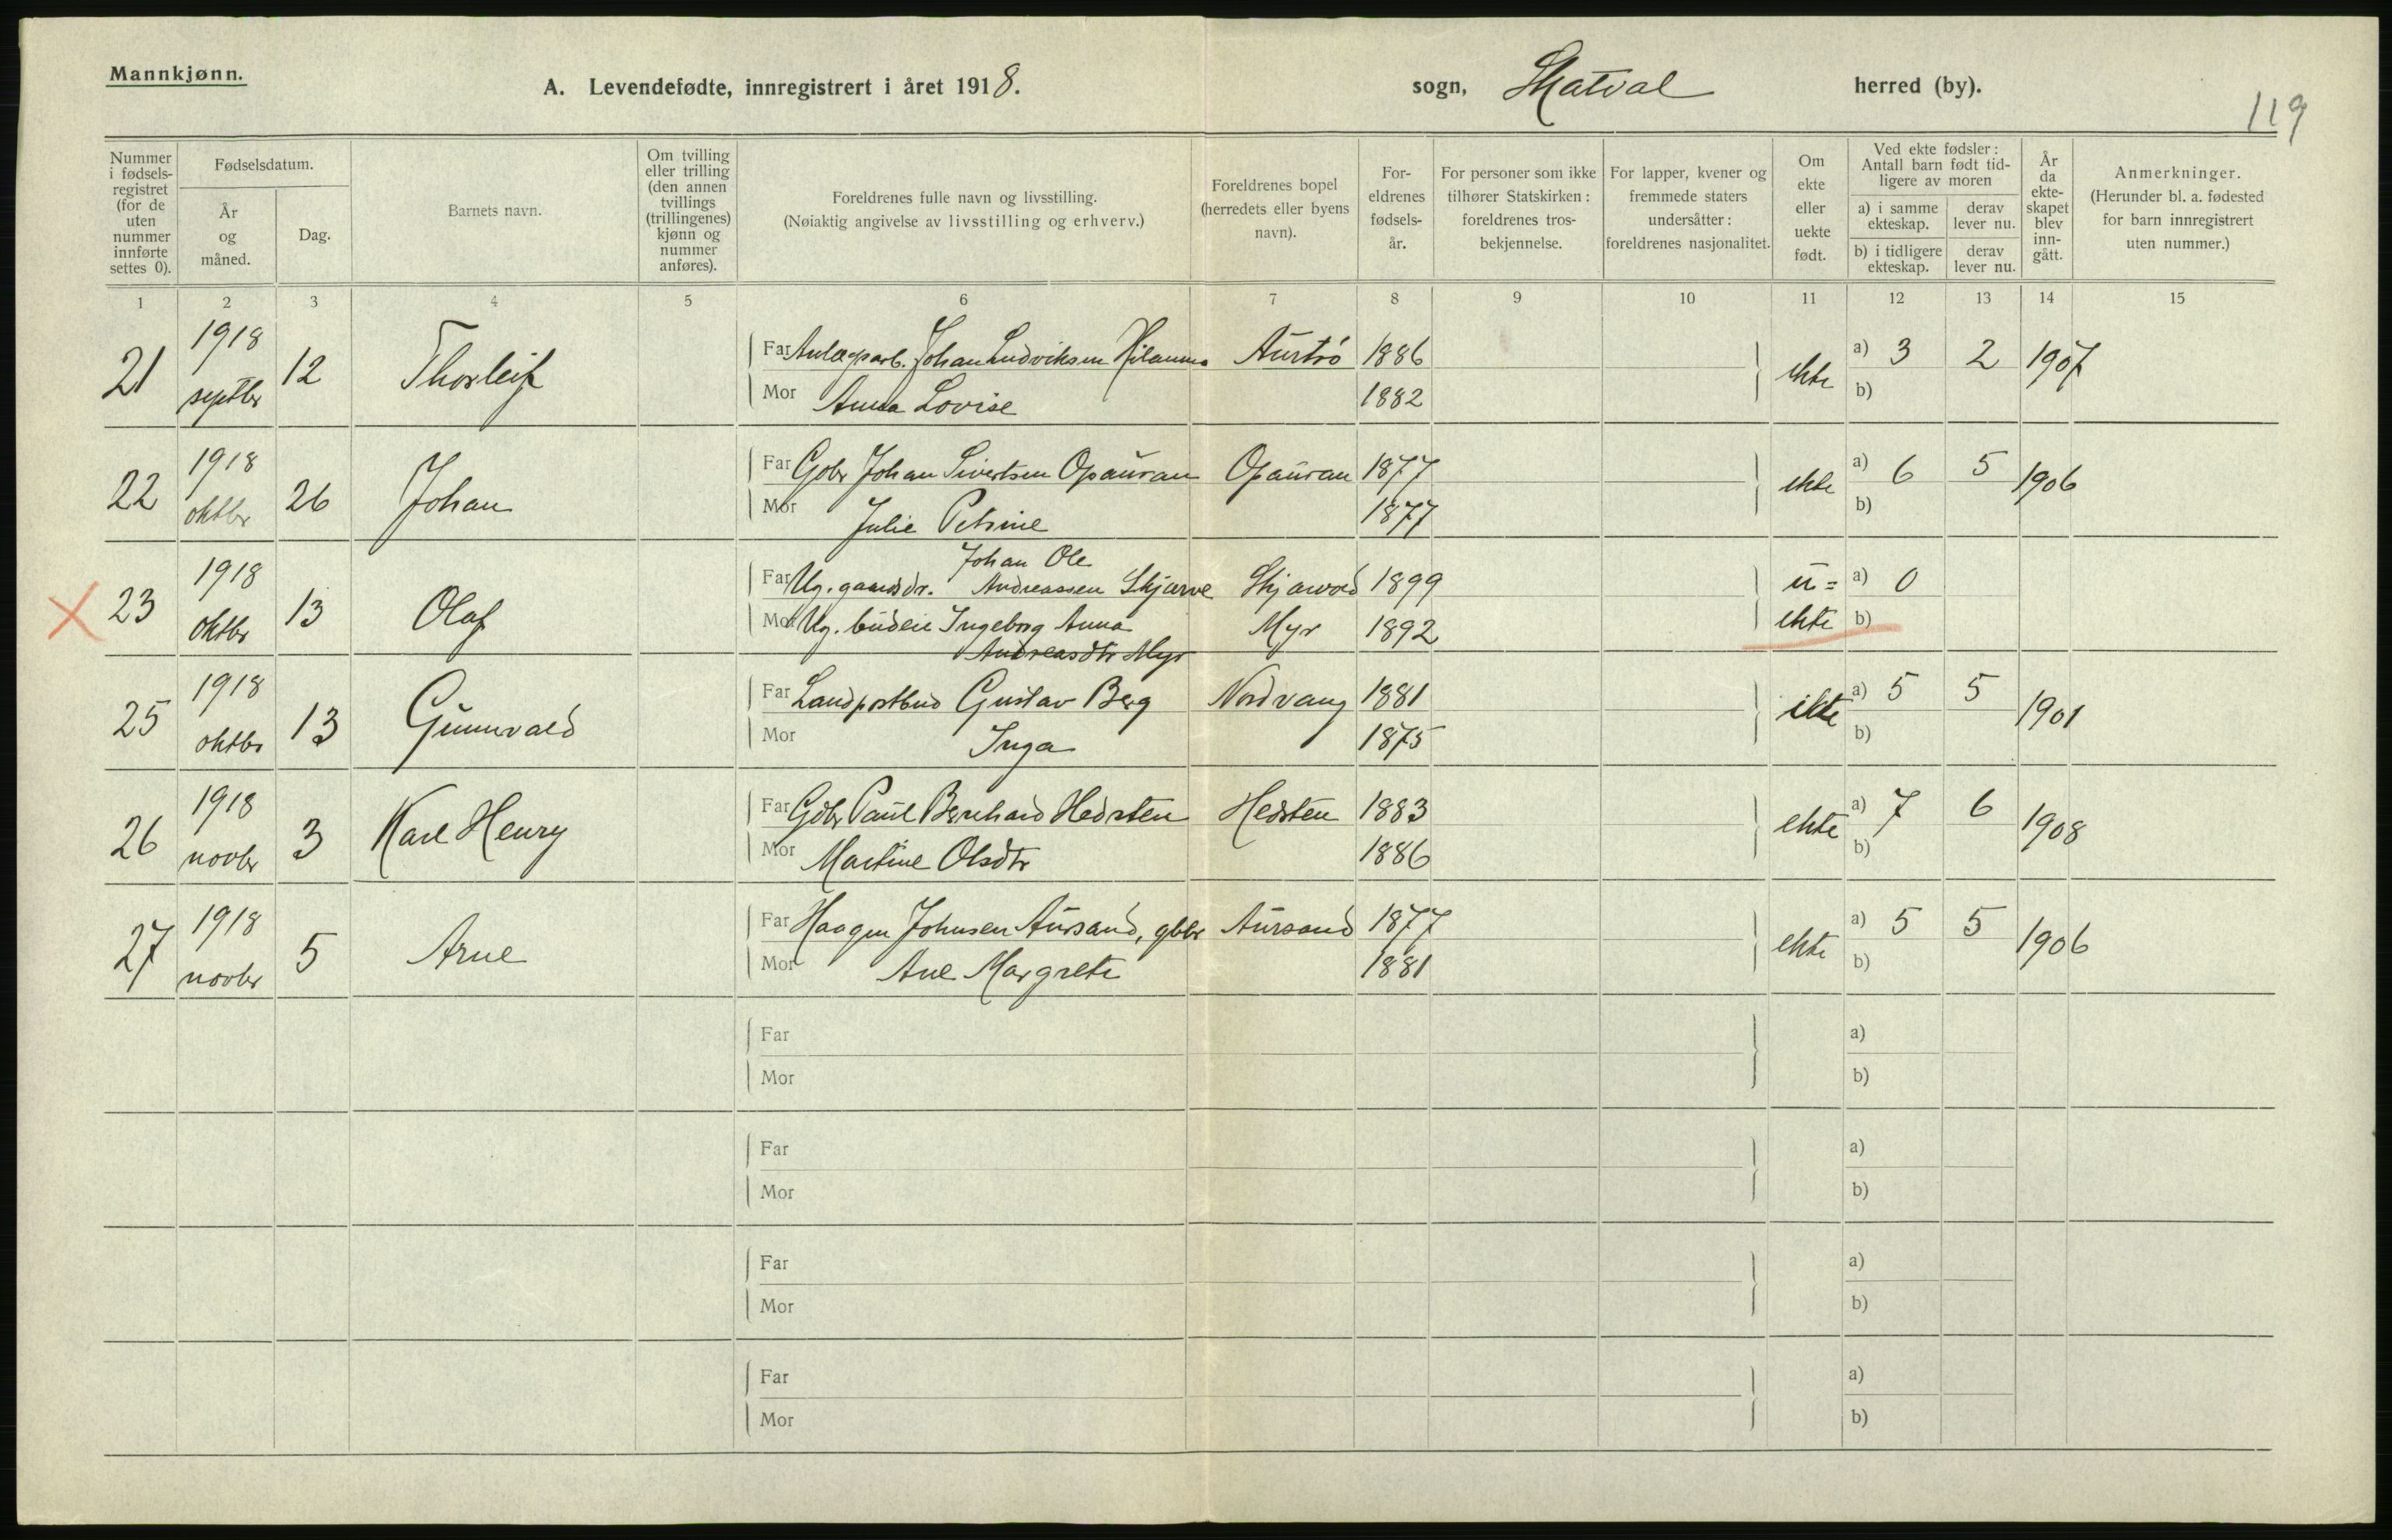 Mannkjønn.
A. Levendefødte, innregistrert i året 1918.
sogn, Skatval herred (by).
119
Nummer i fødselsregistret (for de uten nummer innførte settes 0).
Fødselsdatum.
År og måned.
Dag.
Barnets navn.
Om tvilling eller trilling (den annen tvillings (trillingenes) kjønn og nummer anføres).
Foreldrenes fulle navn og livsstilling.
(Nøiaktig angivelse av livsstilling og erhverv.)
Foreldrenes bopel (herredets eller byens navn).
Foreldrenes fødselsår.
For personer som ikke tilhører Statskirken: foreldrenes trosbekjennelse.
For lapper, kvener og fremmede staters undersåtter: foreldrenes nasjonalitet.
Om ekte eller uekte født.
Ved ekte fødsler: Antall barn født tidligere av moren
a) i samme ekteskap.
derav lever nu.
b) i tidligere ekteskap.
derav lever nu.
År da ekteskapet blev inngått.
Anmerkninger.
(Herunder bl. a. fødested for barn innregistrert uten nummer.)
1 2 3 4 5 6 7 8 9 10 11 12 13 14 15
21 1918 septbr 12 Thorleif
Far Anlægsarb. Johan Ludviksen Aurtrö 1886
Mor Anna Lovise 1882
ekte a) 3 2 1907
b)
22 1918 oktbr 26 Johan
Far Gbr Johan Sivertsen Opauran Opauran 1877
Mor Julie Petrine 1877
ekte a) 6 5 1906
b)
23 1918 oktbr 13 Olaf
Johan Ole
Far Ug. gaardsdr. Andreassen Skjerve 1899
Mor Ug. budeie Ingeborg Anna Myr 1892
Andreasdtr Myr
u= ekte a) 0
b)
25 1918 oktbr 13 Gunnvald
Far Landpostbud Gustav Berg Nordvang 1881
Mor Inga 1875
ekte a) 5 5 1901
b)
26 1918 novbr 3 Karl Henry
Far Gbr Paul Bernhard Hedsten Hedsten 1883
Mor Martine Olsdtr 1886
ekte a) 7 6 1908
b)
27 1918 novbr 5 Arne
Far Haagen Johnsen Aursand, gbbr Aursand 1877
Mor Ane Margrete 1881
ekte a) 5 5 1906
b)
Far a)
Mor b)
Far a)
Mor b)
Far a)
Mor b)
Far a)
Mor b)